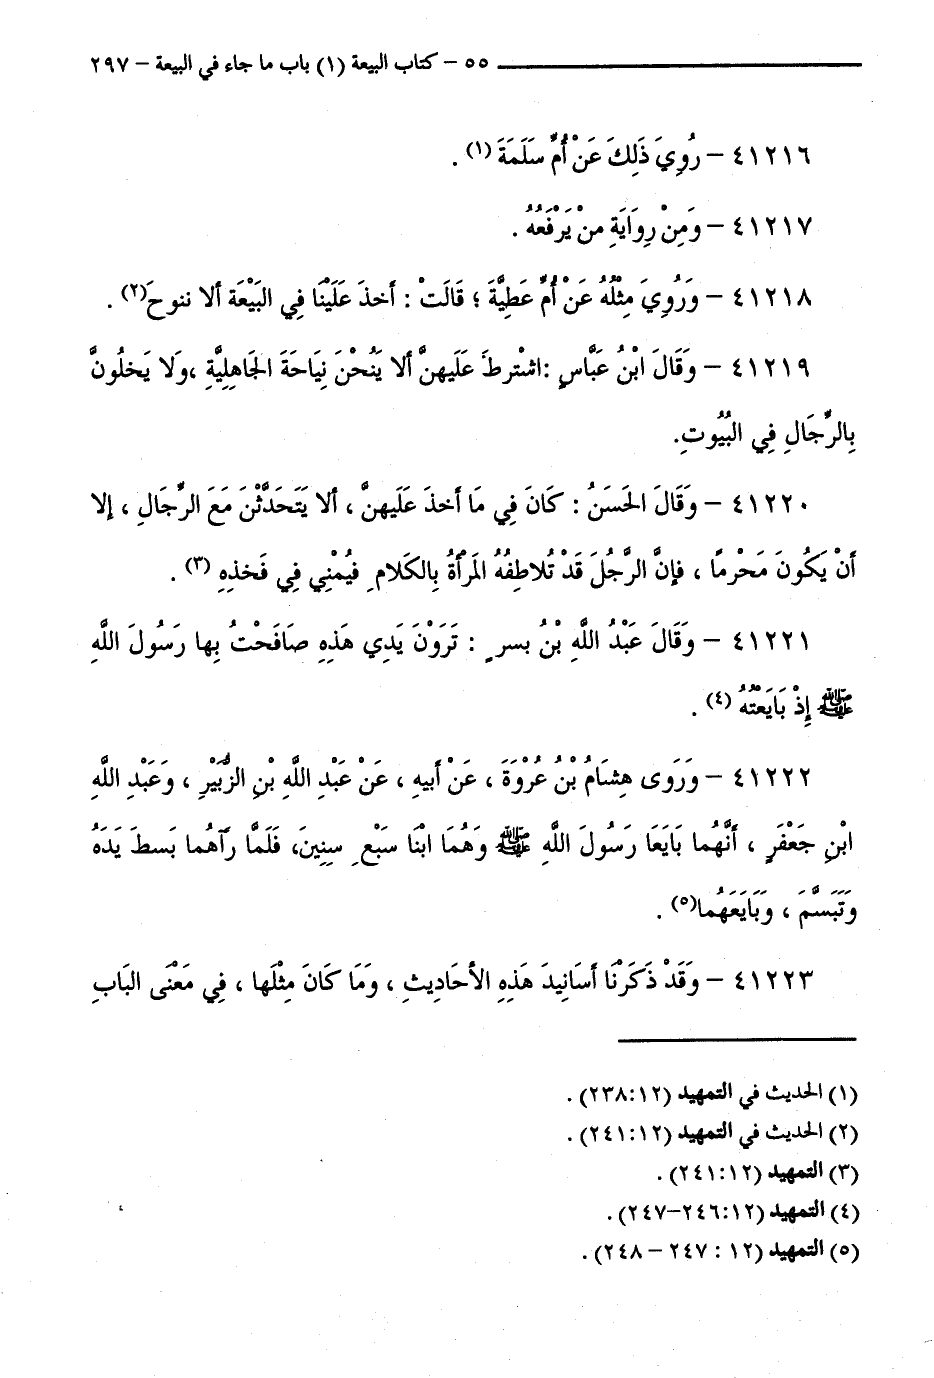 ٥٥ – كتاب البيعة (١) باب ما جاء في البيعة – ٢٩٧
٤١٢١٦ – رُوِيَ ذَلِكَ عَنْ أُمِّ سَلَمَةَ (١) .
٤١٢١٧ – وَمِنْ رِوَايَةِ مَنْ يَرْفَعُهُ .
٤١٢١٨ – وَرُوِيَ مِثْلُهُ عَنْ أُمِّ عَطِيَّةَ ؛ قَالَتْ : أخذَ عَلَيْنَا فِي البَيْعَة ألا ننوحَ(٢) .
٤١٢١٩ – وَقَالَ ابْنُ عَبَّاسٍ :اشْترطَ عَلَيهنَّ ألا يَنُحْنَ نِيَاحَةَ الجَاهِليَّةِ ،وَلا يَخلُونَّ
بِالرِّجَالِ فِي البُيُوتِ.
٤١٢٢٠ – وَقَالَ الحَسَنُ : كَانَ فِي مَا أخذَ عَلَيهنَّ ، ألا يَتَحَدَّثْنَ مَعَ الرِّجَالِ ، إلا
أنْ يَكُونَ مَحْرمًا ، فإنَّ الرَّجُلَ قَدْ تُلاطِفُهُ المَرْأةُ بِالكَلامِ فيُمْنِي فِي فَخذِهِ (٣) .
٤١٢٢١ – وَقَالَ عَبْدُ اللَّهِ بْنُ بسرٍ : تَرَوْنَ يَدِي هَذِهِ صَافَحْتُ بِها رَسُولَ اللَّهِ
ﷺ إِذْ بَايَعْتُهُ (٤) .
٤١٢٢٢ – وَرَوى هِشَامُ بْنُ عُرْوَةَ ، عَنْ أبيهِ ، عَنْ عَبْدِ اللَّهِ بْنِ الزُّبَيْرِ ، وَعَبْدِ اللَّهِ
ابْنِ جَعْفَرٍ ، أنَّهُما بَايَعَا رَسُولَ اللَّهِ ﷺ وَهُمَا ابْنَا سَبْعِ سِنِينَ، فَلَمَّا رَآهُما بَسطَ يَدَهُ
وَتَبَسَّمَ ، وَبَايَعَهُما(٥) .
٤١٢٢٣ – وَقَدْ ذَكَرْنَا أسَانِيدَ هَذِهِ الأحَادِيثِ ، وَمَا كَانَ مِثْلَها ، فِي مَعْنَى البَابِ
(١) الحديث في التمهيد (٢٣٨:١٢) .
(٢) الحديث في التمهيد (٢٤١:١٢) .
(٣) التمهيد (٢٤١:١٢) .
(٤) التمهيد (٢٤٦:١٢–٢٤٧) .
(٥) التمهيد (١٢ : ٢٤٧ – ٢٤٨) .